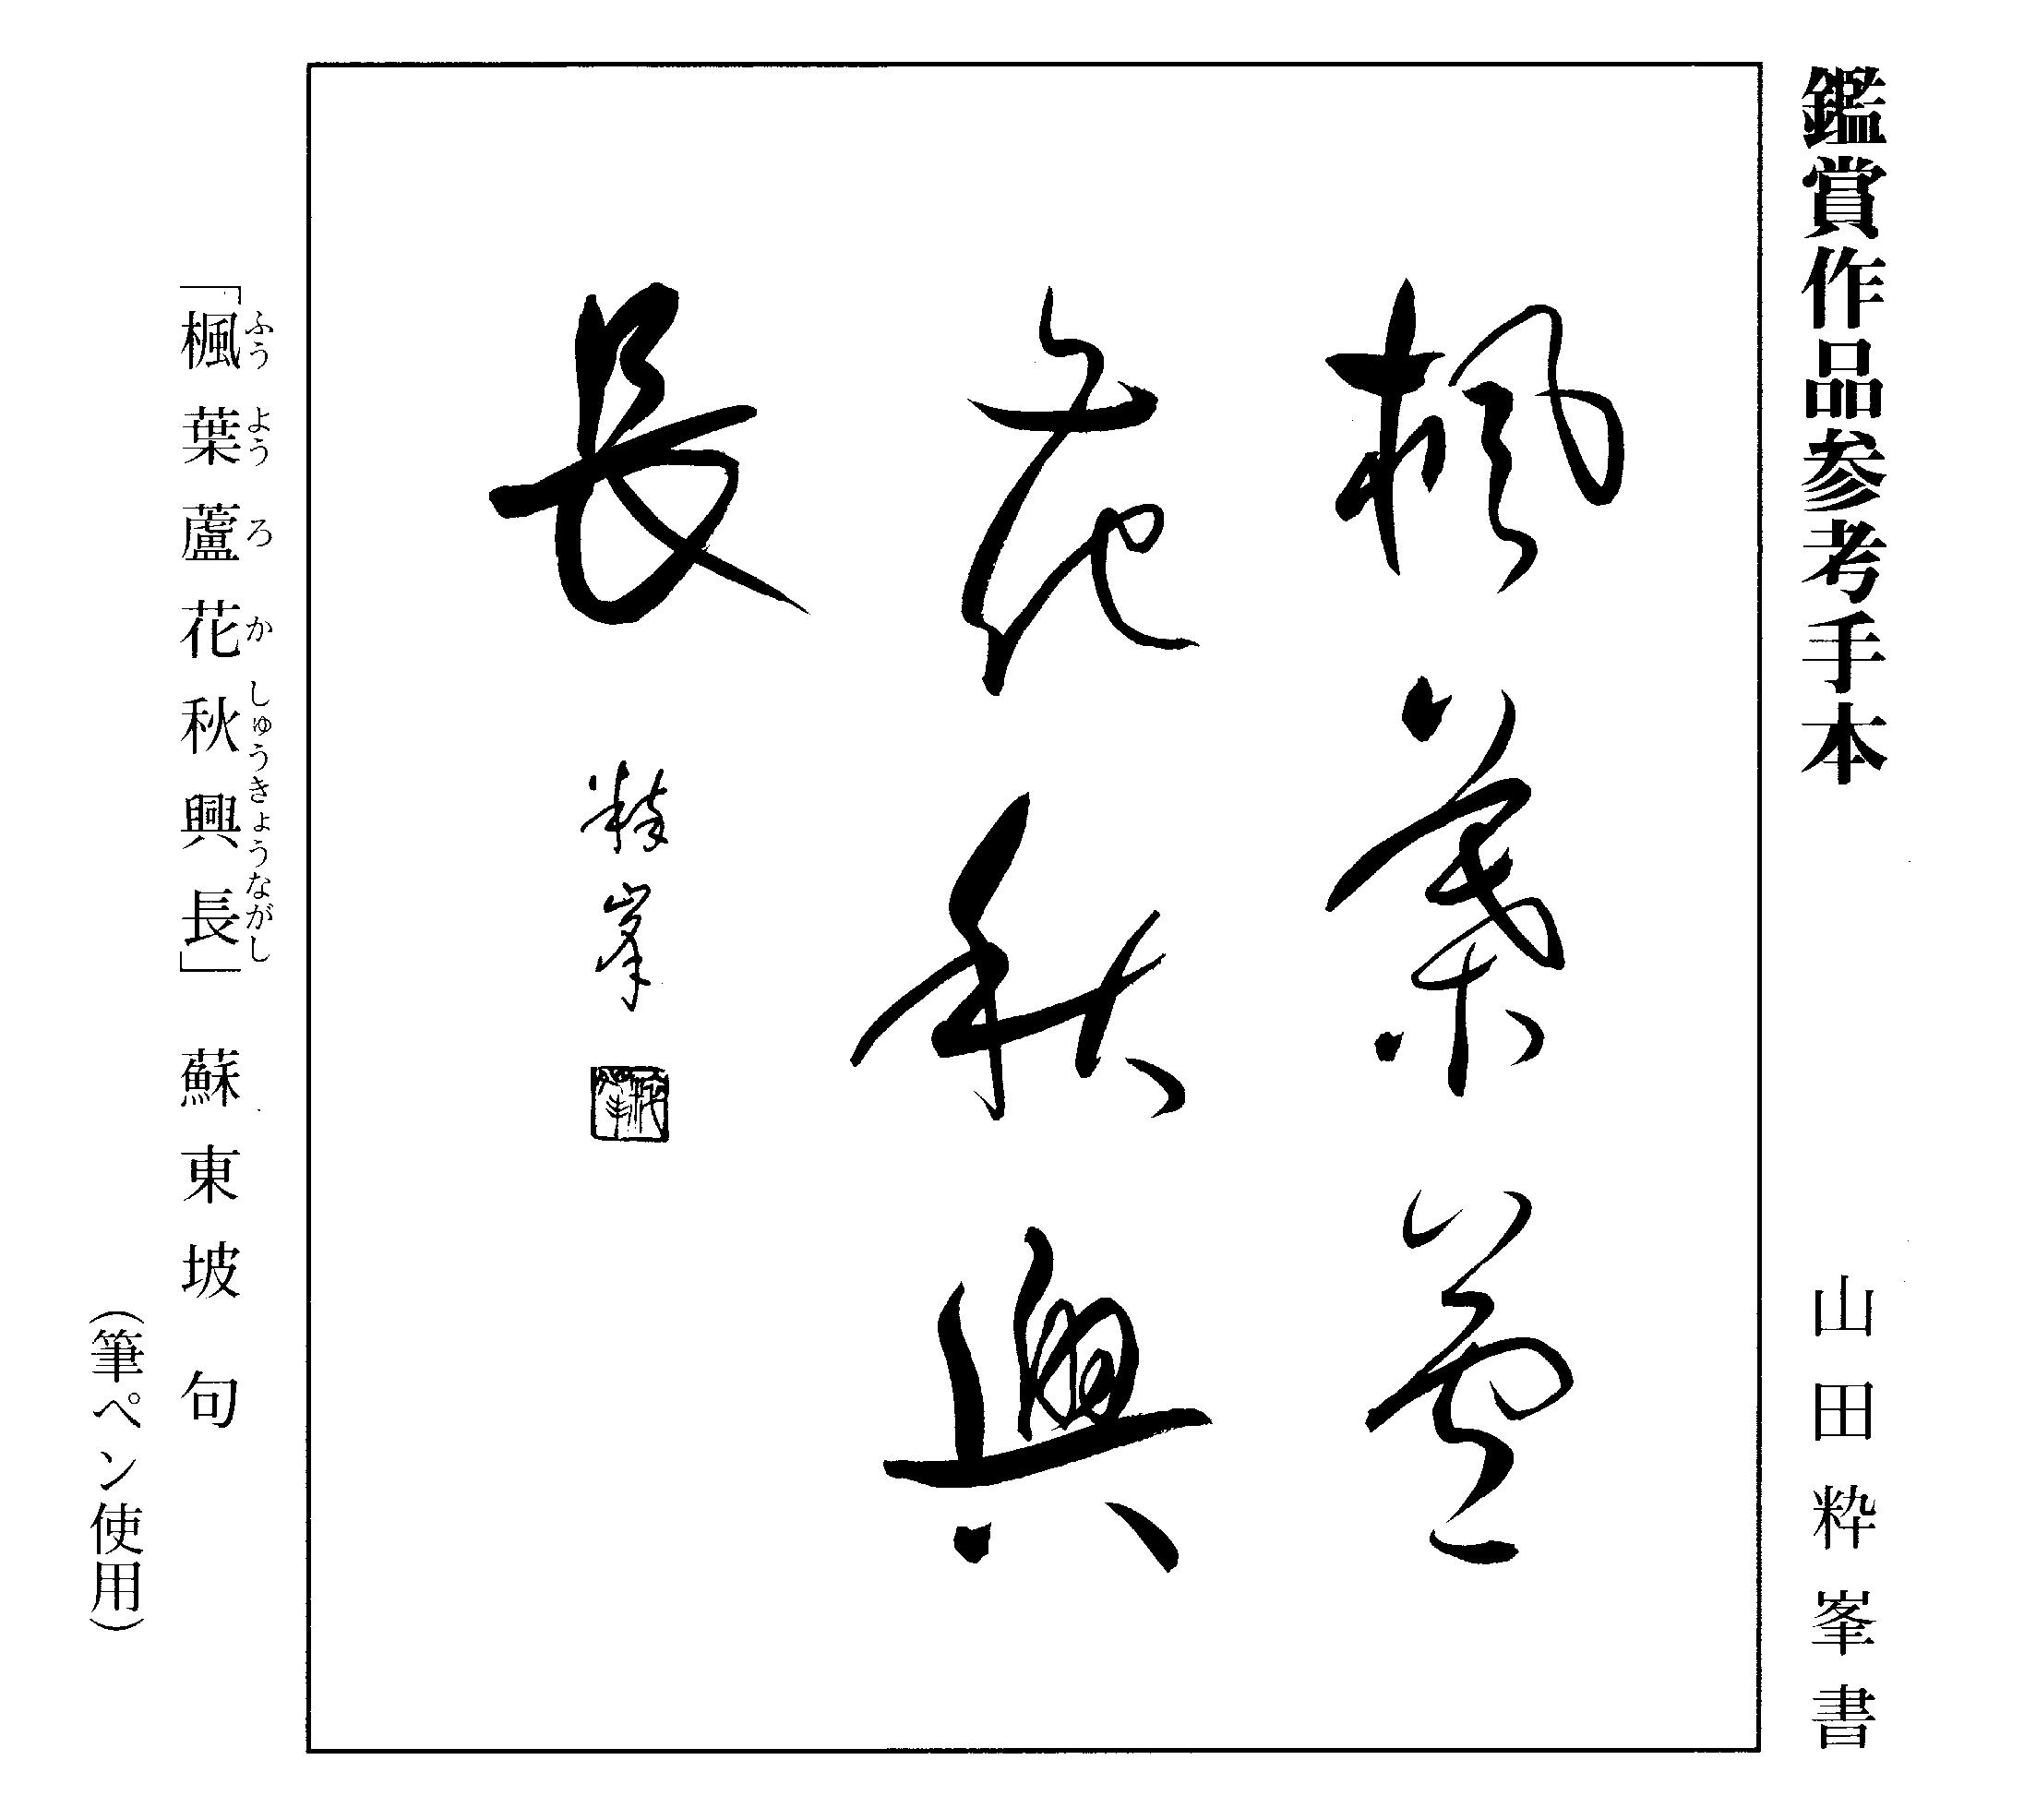 鑑賞作品参考手本
山田粋峯書
楓葉蘆
花秋興
長
粋峯
「楓葉蘆花秋興長」 蘇東坡 句
ふう よう ろ か しゅうきょうながし
(筆ペン使用)